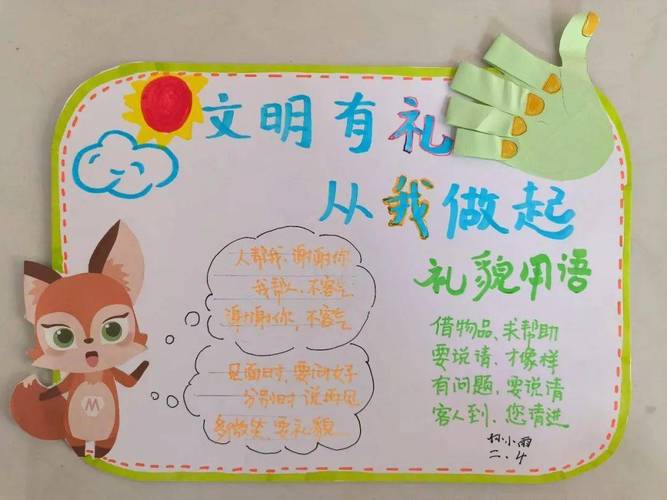 文明有礼
从我做起
人帮我、谢谢你
我帮人、不客气
谢谢你，不客气
见面时，要问好
分别时 说再见
多微笑、要礼貌
M
礼貌用语
借物品、求帮助
要说请、才像样
有问题、要说请
客人到、您请进
小雨
二.4